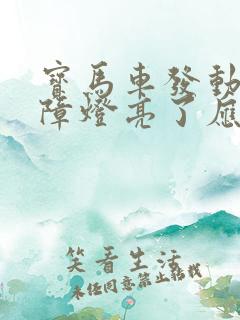 寶馬車發動
障燈亮了應
笑看生活
未经同意禁止转载